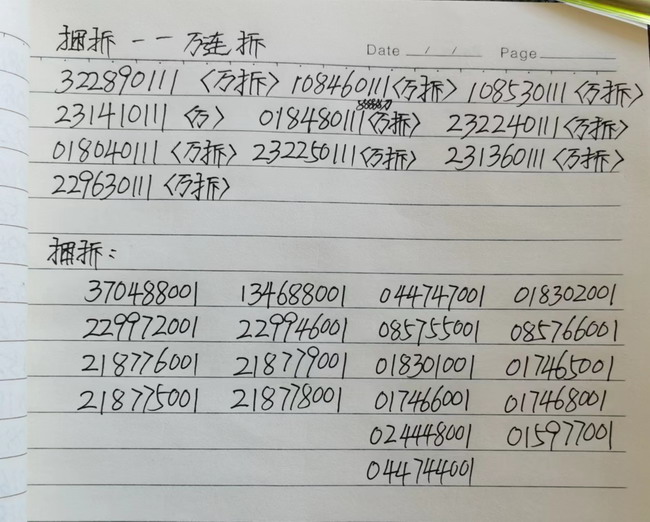 捆拆 -- 万连拆
Date / / Page
322890111 〈万拆〉 108460111 〈万拆〉 108530111 〈万拆〉
231410111 〈万〉 018480111 〈万拆〉 232240111 〈万拆〉
018040111 〈万拆〉 232250111 〈万拆〉 231360111 〈万拆〉
229630111 〈万拆〉
捆拆:
370488001 134688001 044747001 018302001
229972001 229946001 085755001 085766001
218776001 218779001 018301001 017465001
218775001 218778001 017466001 017468001
024448001 015977001
044744001